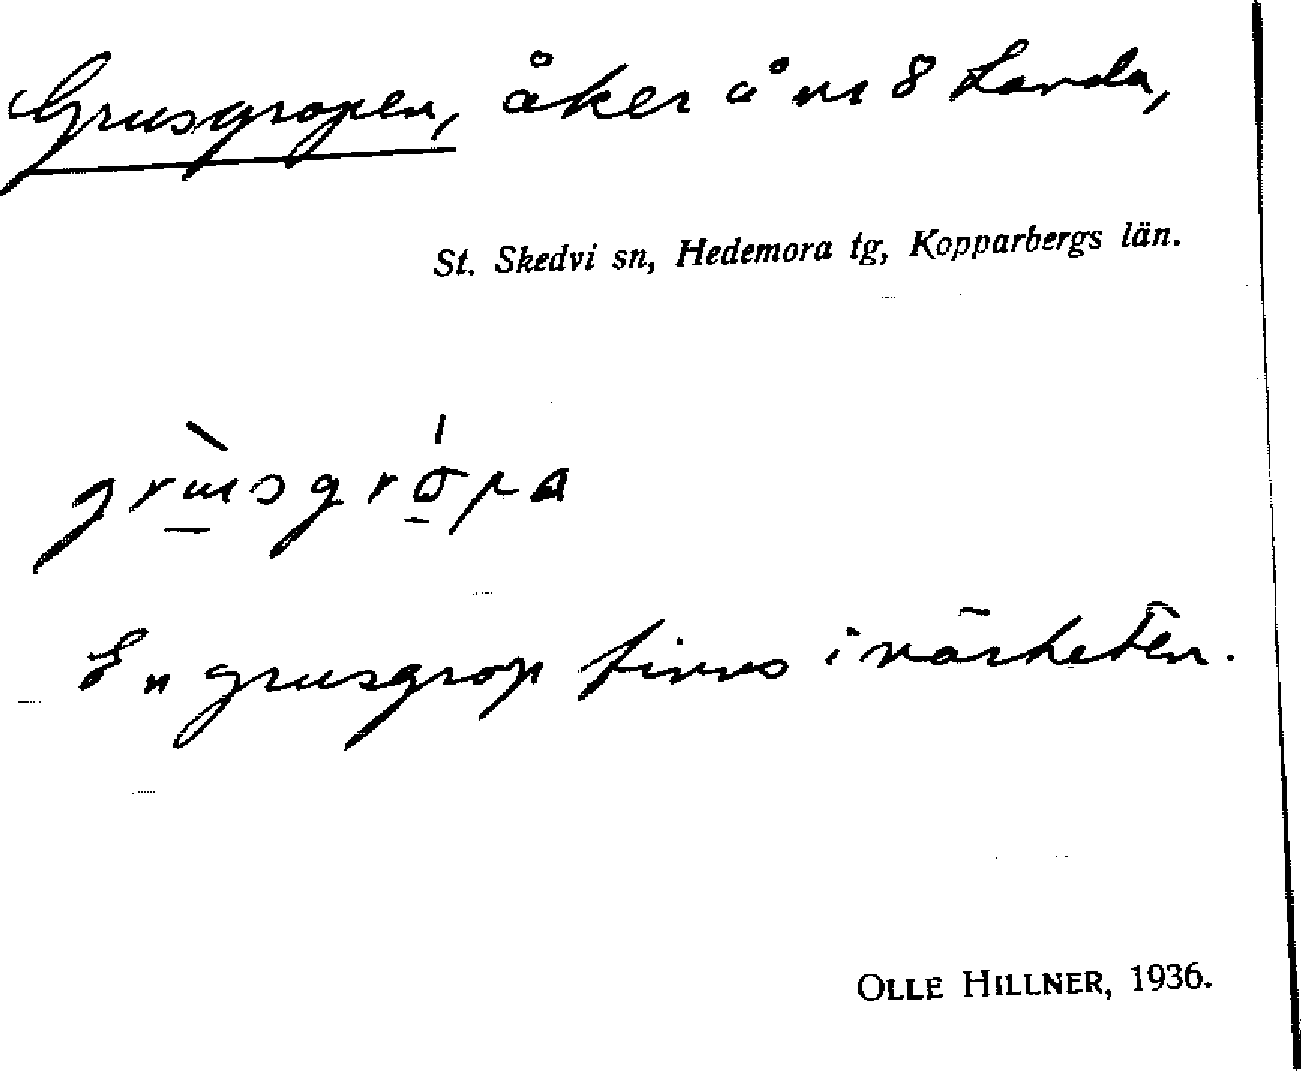 Grusgropen, åker å nr 8 Landa,
St. Skedvi sn, Hedemora tg, Kopparbergs län.
En grusgrop finns i närheten.
OLLE HILLNER, 1936.